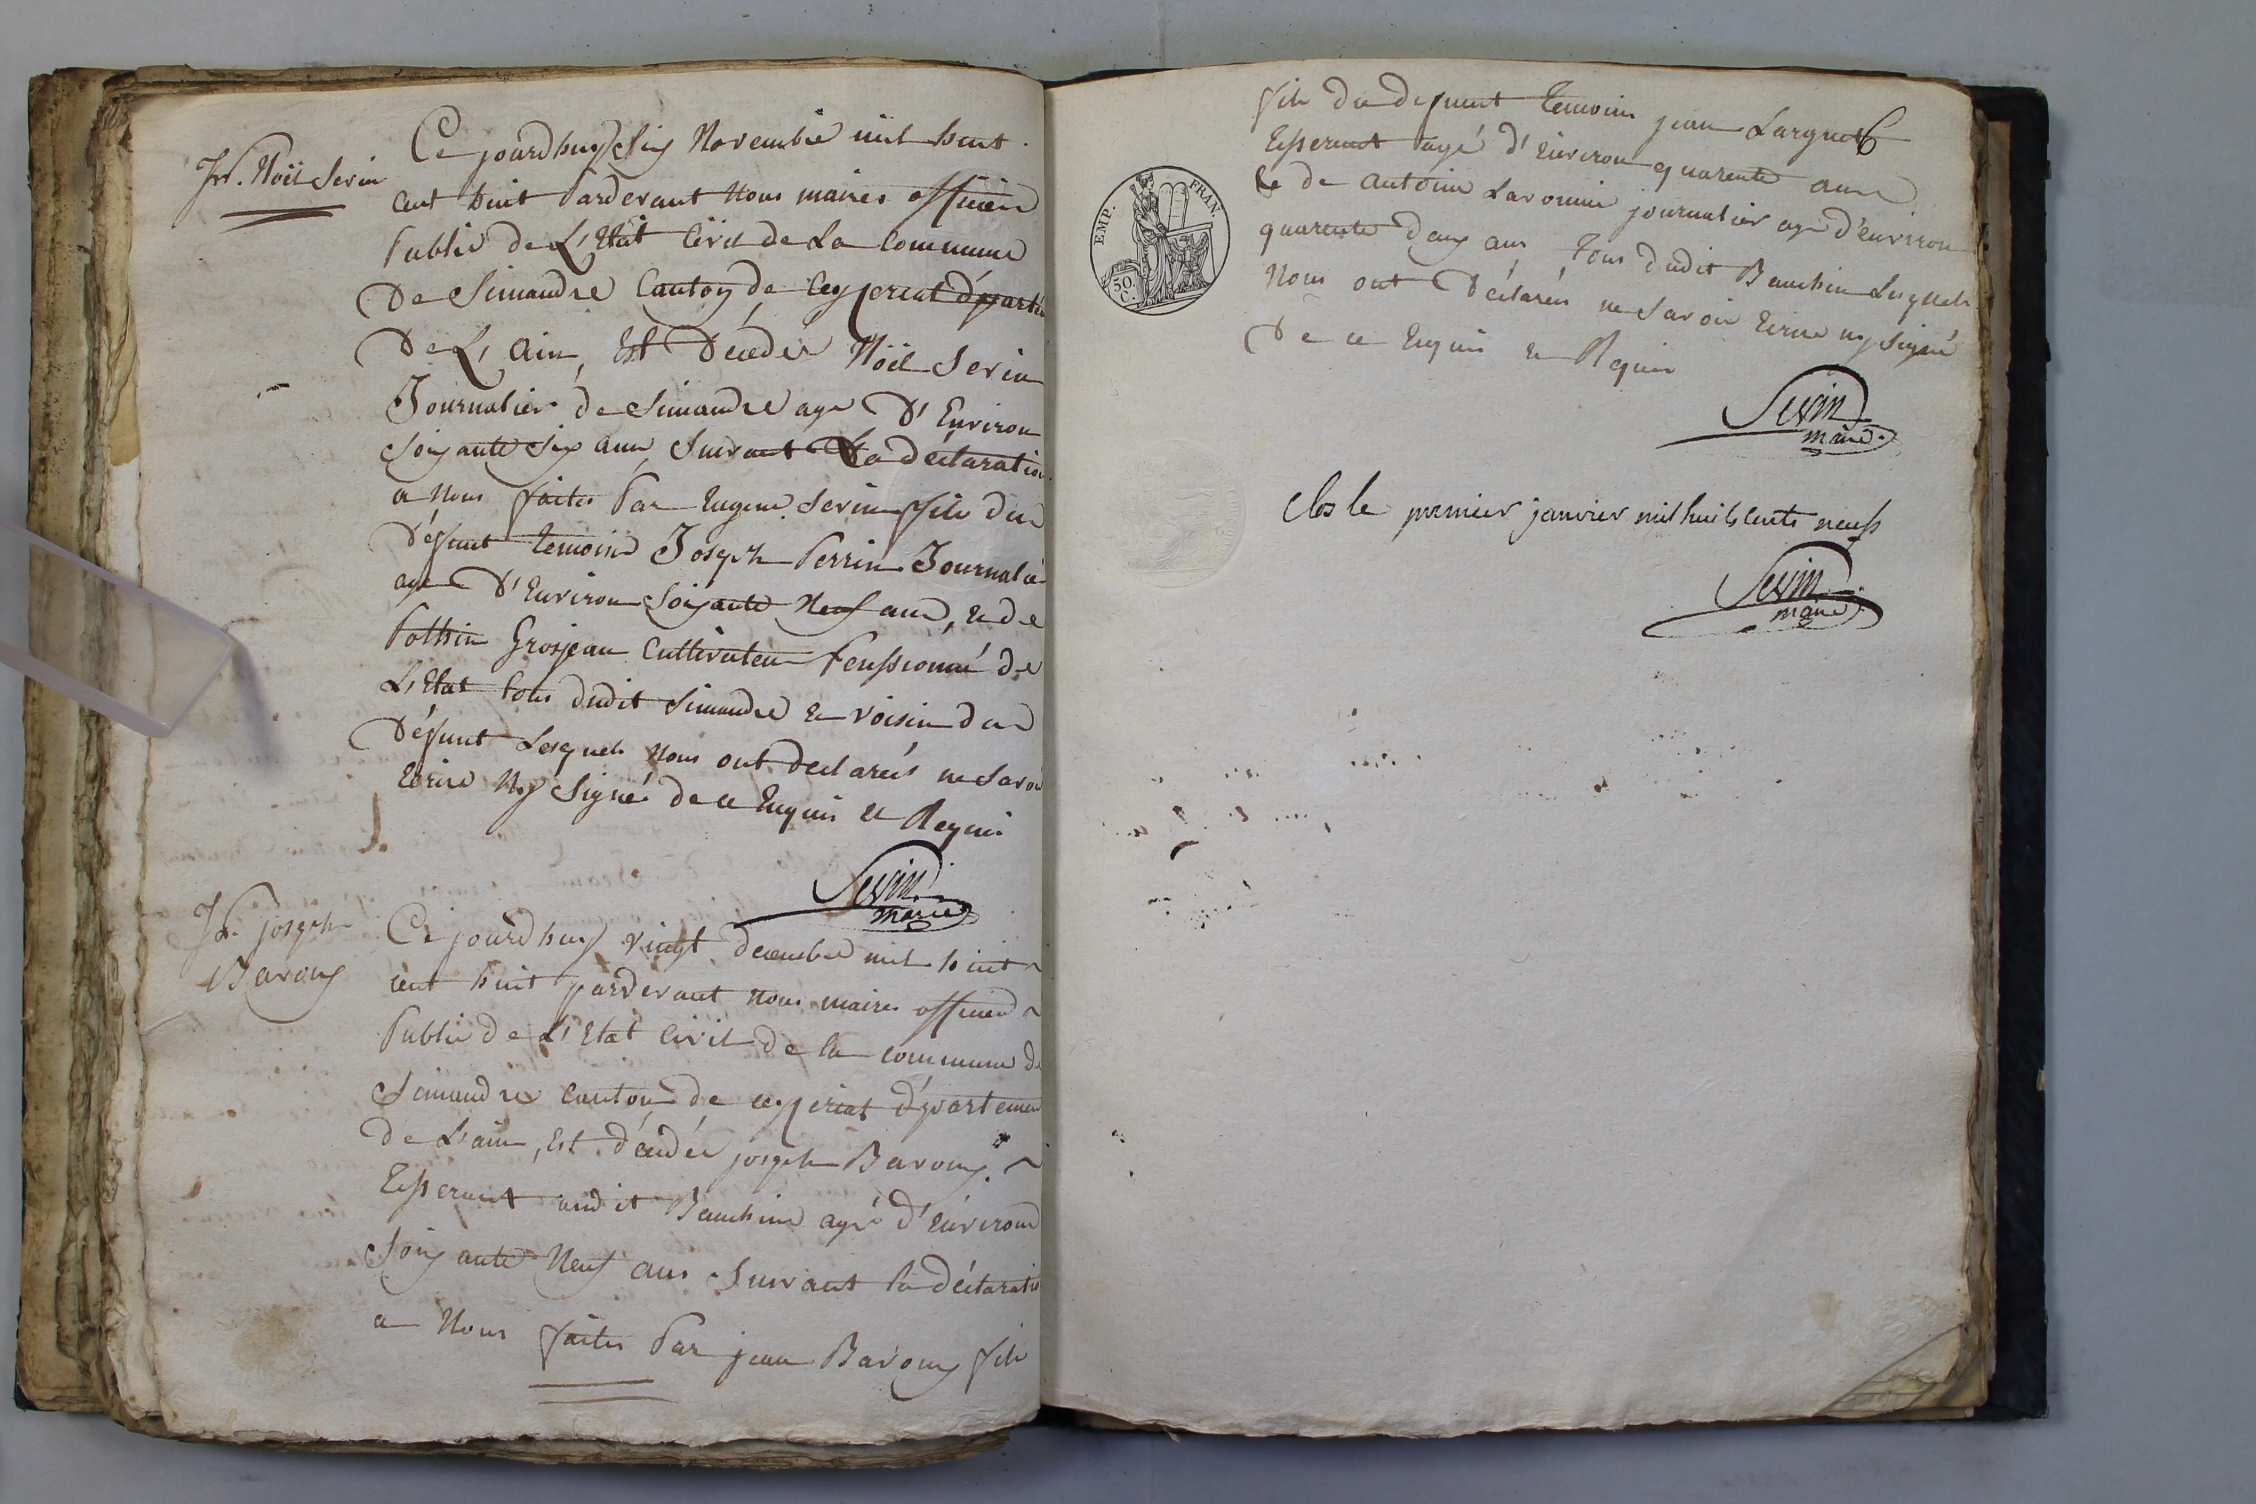 Noël Sevin
Ce jourd'huy Six Novembre mil huit
cent huit Pardevant Nous maires officier
Public de L'Etat Civil de La Commune
De Simandre Canton de Ceyzeriat départ
De L'Ain, Est Décédéz Noël Sevin
Journalier de Simandre agé D'Environ
Soixante Six ans, Suivant La déclaration
a Nous faites Par Eugene Sevin fils du
Défunt temoins Joseph Perrin Journalié
agé D'Environ Soixante Neuf ans, & de
Pothin Grosjean Cultivateur Penssionné de
L'Etat tous dudit Simandre & voisin du
Défunt Lesquels Nous ont déclarés ne Savoir
Ecrire Ny Signé de ce Enquis et Requis
Sevin
maire
joseph
Bavoux
Ce jourd'huy vingt decembre mil huit
cent huit pardevant nous maires officier
Public de L'Etat Civil de la commune de
Simandre canton de ceyzeriat département
de L'ain, Est décédéz joseph Bavoux
Tisserant audit Banchin agé d'Environ
Soixante Neuf ans Suivant la déclaration
a Nous faites Par jean Bavoux fils
fils du defunt temoins jean
Tisserant agé d'Environ quarente ans
& de antoine Lavonne journalier agé d'environ
quarente deux ans tous dudit Banchin Lesquels
Nous ont déclarés ne Savoir Ecrire ny Signé
De ce Enquis & Requis
Sevin
maire
EMP. FRAN.
50
C.
Clos le premier janvier mil huit cents neuf
Sevin
maire